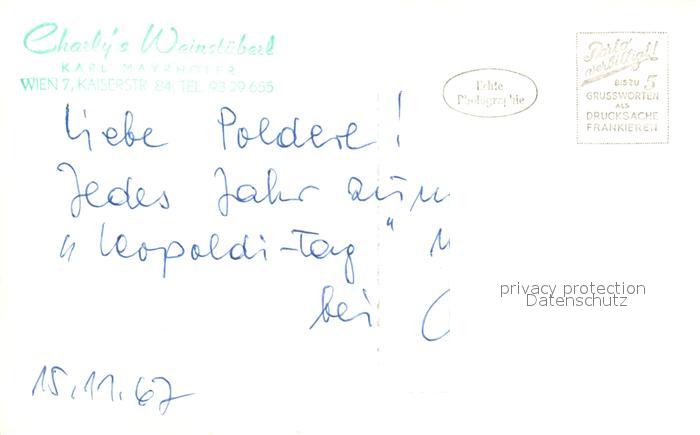 Charly's Weinstüberl
KARL MAYRHOFER
WIEN 7, KAISERSTR. 84, TEL. 93 29 655
Echte
Photographie
Porto
verbilligt!
BIS ZU 5
GRUSSWORTEN
ALS
DRUCKSACHE
FRANKIEREN
Liebe Polderl!
Jedes Jahr zum
"Leopoldi-Tag"
bei
15.11.67
privacy protection
Datenschutz